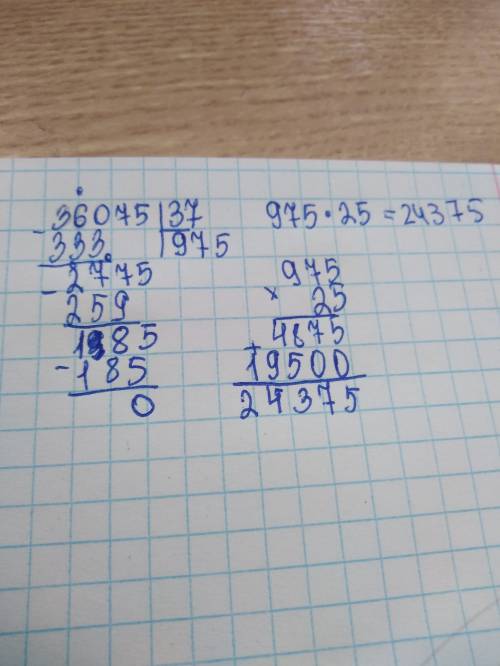 36075 | 37
- 333 | 975
2775
- 259
185
- 185
0
975 · 25 = 24375
975
× 25
4875
+ 19500
24375